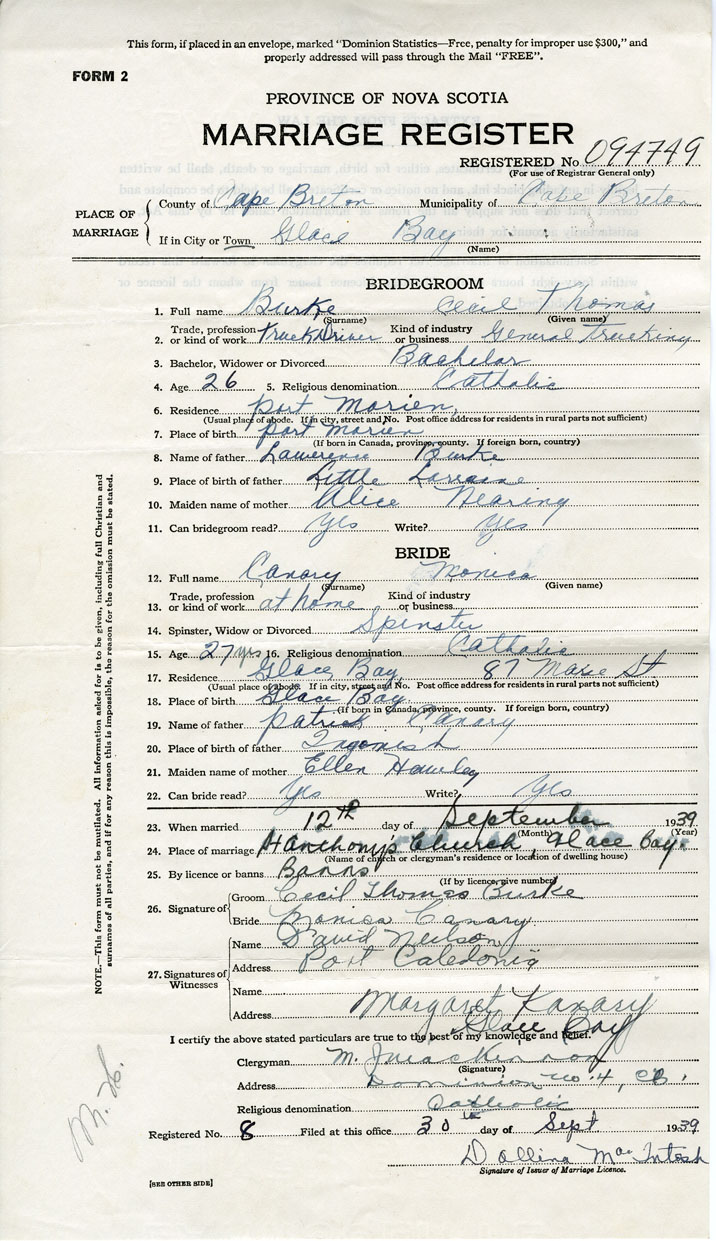 This form, if placed in an envelope, marked "Dominion Statistics—Free, penalty for improper use $300," and
properly addressed will pass through the Mail "FREE".
FORM 2
PROVINCE OF NOVA SCOTIA
MARRIAGE REGISTER
REGISTERED No 094749
(For use of Registrar General only)
PLACE OF MARRIAGE
County of Cape Breton Municipality of Cape Breton
If in City or Town Glace Bay
(Name)
BRIDEGROOM
1. Full name Burke Cecil Thomas
(Surname) (Given name)
2. Trade, profession or kind of work Truck Driver Kind of industry or business General Trucking
3. Bachelor, Widower or Divorced Bachelor
4. Age 26 5. Religious denomination Catholic
6. Residence Port Morien
(Usual place of abode. If in city, street and No. Post office address for residents in rural parts not sufficient)
7. Place of birth Port Morien
(If born in Canada, province, county. If foreign born, country)
8. Name of father Lawrence Burke
9. Place of birth of father Little Lorraine
10. Maiden name of mother Alice Nearing
11. Can bridegroom read? Yes Write? Yes
BRIDE
12. Full name Canary Monica
(Surname) (Given name)
13. Trade, profession or kind of work at home Kind of industry or business
14. Spinster, Widow or Divorced Spinster
15. Age 27 yrs 16. Religious denomination Catholic
17. Residence Glace Bay 87 St
(Usual place of abode. If in city, street and No. Post office address for residents in rural parts not sufficient)
18. Place of birth Glace Bay
(If born in Canada, province, county. If foreign born, country)
19. Name of father Patrick Canary
20. Place of birth of father Ingonish
21. Maiden name of mother Ellen Hawley
22. Can bride read? Yes Write? Yes
23. When married 12th day of September 1939
(Month) (Year)
24. Place of marriage Church, Glace Bay
(Name of church or clergyman's residence or location of dwelling house)
25. By licence or banns Banns
(If by licence, give number)
26. Signature of Groom Cecil Thomas Burke
Bride Monica Canary
27. Signatures of Witnesses
Name David Neilson
Address Port Caledonia
Name Margaret Kanary
Address Glace Bay
I certify the above stated particulars are true to the best of my knowledge and belief.
Clergyman M. J. MacKinnon
(Signature)
Address Dominion No. 4, CB.
Religious denomination Catholic
Registered No. 8 Filed at this office 30th day of Sept 1939
Dollina MacIntosh
Signature of Issuer of Marriage Licence.
[SEE OTHER SIDE]
NOTE.—This form must not be mutilated. All information asked for is to be given, including full Christian and
surnames of all parties, and if for any reason this is impossible, the reason for the omission must be stated.